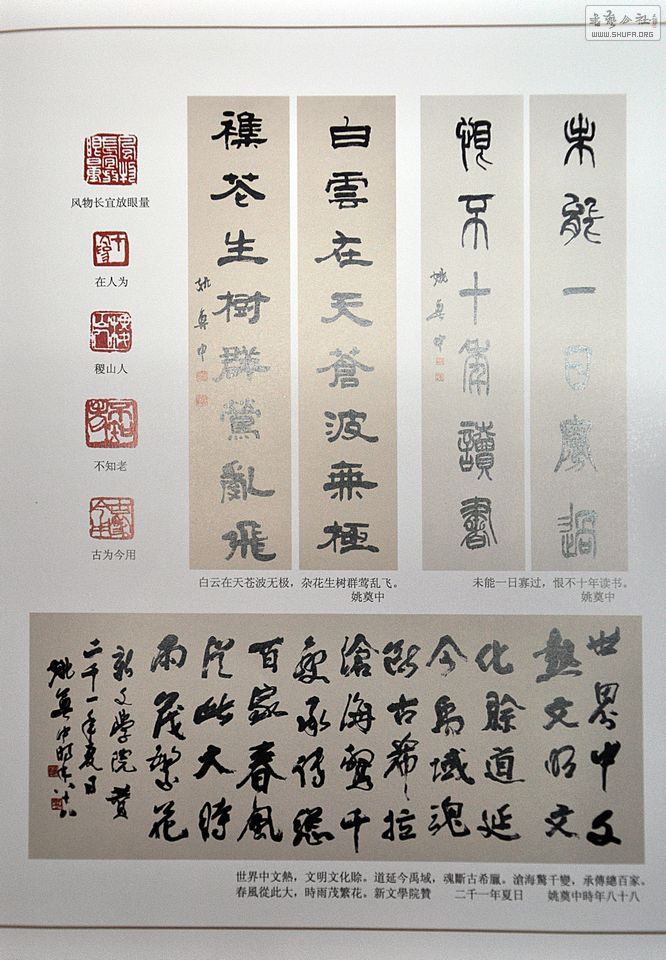 书艺公社
WWW.SHUFA.ORG
风物长宜放眼量
在人为
稷山人
不知老
古为今用
未能一日寡過
恨不十年讀書
姚奠中
白雲在天蒼波無極
襍花生樹群鶯亂飛
姚奠中
白云在天苍波无极，杂花生树群莺乱飞。
姚奠中
未能一日寡过，恨不十年读书。
姚奠中
世界中文
熱文明文
化賒道延
今禹域魂
斷古希臘
滄海驚千
變承傳總
百家春風
從此大時
雨茂繁花
新文學院贊
二千一年夏日
姚奠中時年八十八
世界中文熱，文明文化賒。道延今禹域，魂斷古希臘。滄海驚千變，承傳總百家。
春風從此大，時雨茂繁花。新文學院贊 二千一年夏日 姚奠中時年八十八